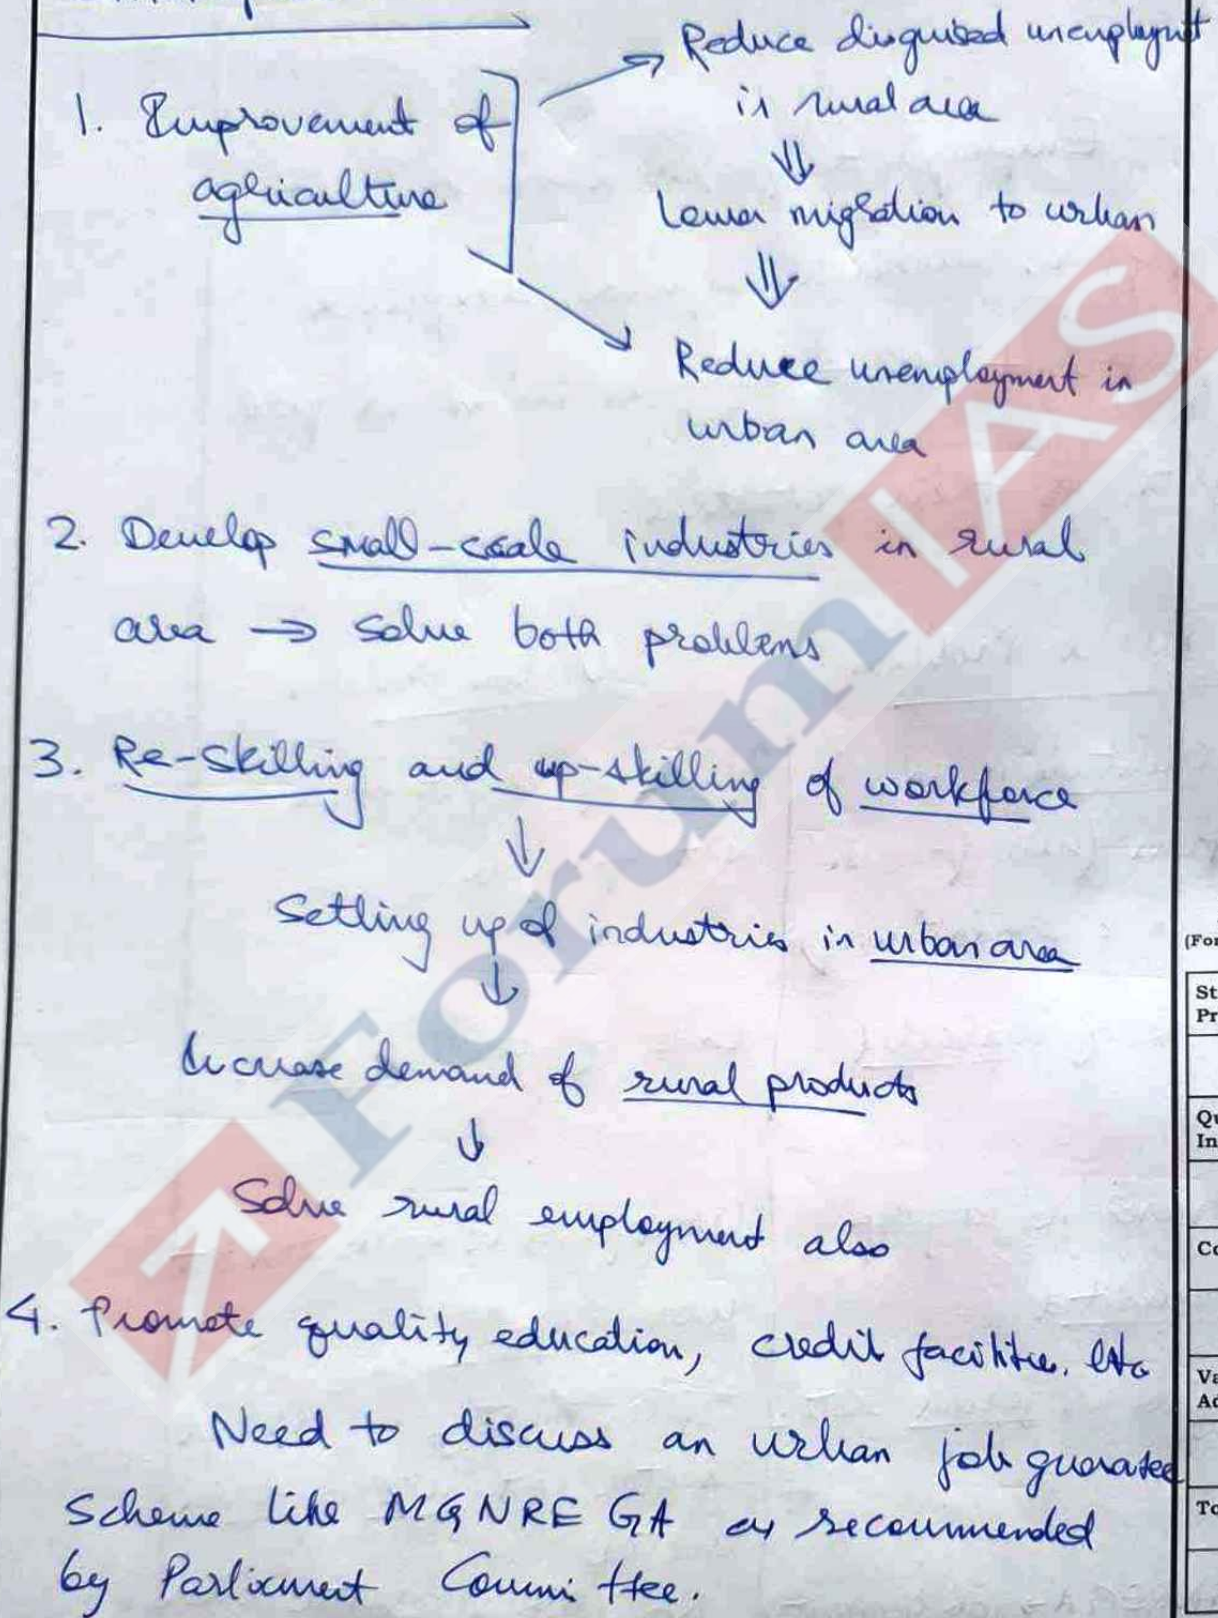 1. Improvement of
agriculture
Reduce disguised unemployment
in rural area
⇓
Lower migration to urban
⇓
Reduce unemployment in
urban area
2. Develop small-scale industries in rural
area → Solve both problems
3. Re-skilling and up-skilling of workforce
↓
Setting up of industries in urban area
↓
Increase demand of rural products
↓
Solve rural employment also
4. Promote quality education, credit facilities. etc
Need to discuss an urban job guarantee
Scheme like MGNREGA as recommended
by Parliament Committee.
ForumIAS
(For
St
Pr
Qu
In
Co
Va
Ad
To